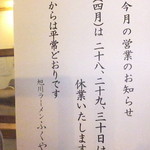 今月の営業のお知らせ
(四月)は二十八、二十九、三十日は
休業いたします
からは平常どおりです
旭川ラーメン・ふくや